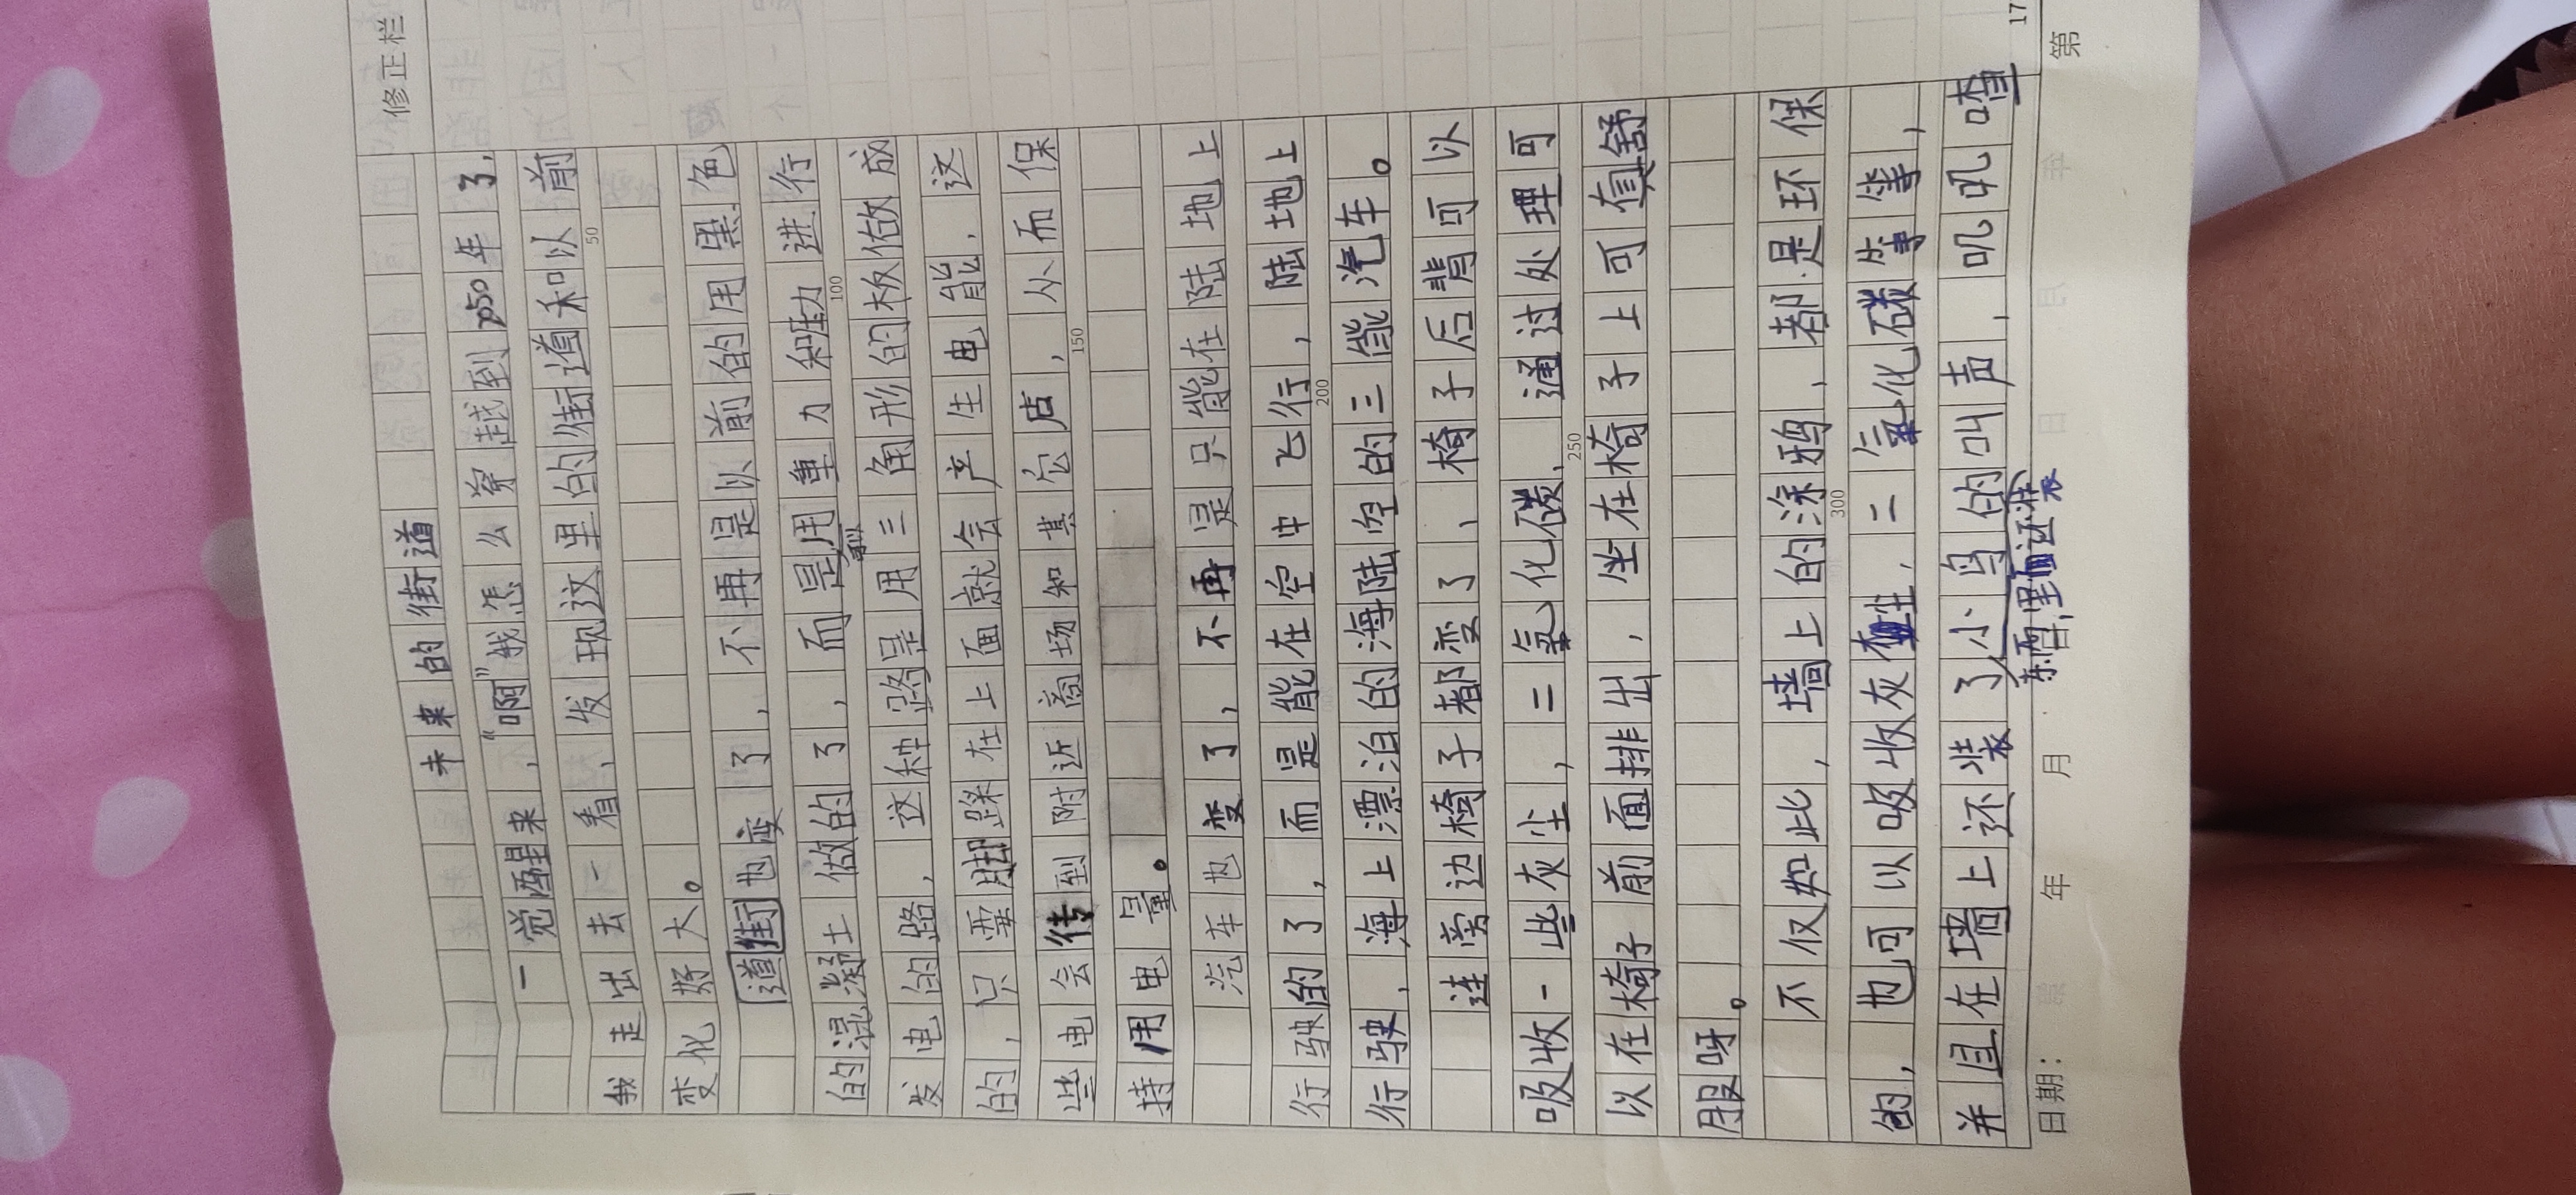 修正栏
未来的街道
一觉醒来，“啊”我怎么穿越到2050年了，
我走出去一看，发现这里的街道和以前
变化好大。
道街也变了，不再是以前的用黑色
的混凝土做的了，而是用重力和压力进行
发电的路，这种路是用三角形的板做成
的，只需脚踩在上面就会产生电能，这
些电会传到附近商场和其它店，从而保
持用电量。
汽车也变了，不再是只能在陆地上
行驶的了，而是能在空中飞行，陆地上
行驶，海上漂泊的海陆空的三能汽车。
连旁边椅子都变了，椅子后背可以
吸收一些灰尘，二氧化碳，通过处理可
以在椅子前面排出，坐在椅子上可真舒
服呀。
不仅如此，墙上的涂鸦，都是环保
的，也可以吸收灰尘，二氧化碳等等，
并且在墙上还装了小鸟的叫声，叽叽喳
东西，里面还装
50
100
150
200
250
300
日期：
年
月
日
第
17